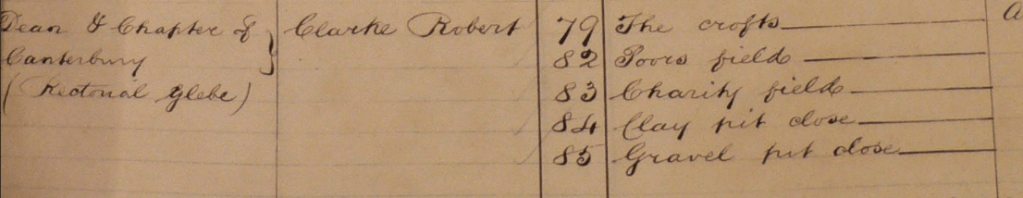 Dean & Chapter of } Clarke Robert 79 The crofts
Canterbury 82 Poors field
(Rectorial glebe) 83 Charity field
84 Clay pit close
85 Gravel pit close